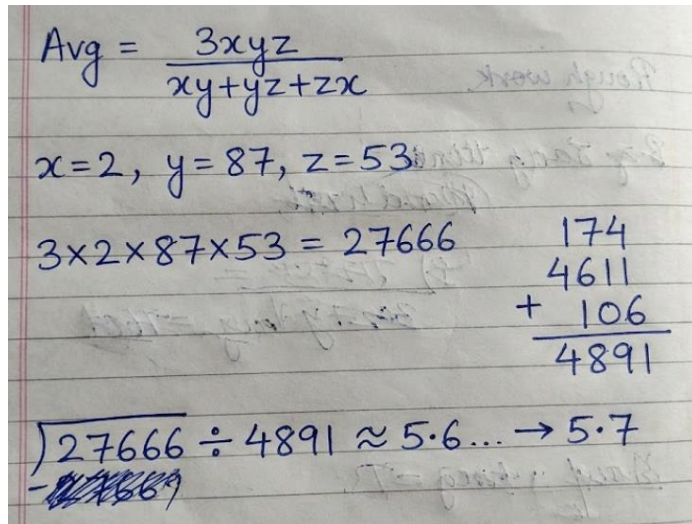 Avg = 3xyz / xy+yz+zx
x=2, y=87, z=53
3×2×87×53 = 27666
174
4611
+ 106
4891
27666 ÷ 4891 ≈ 5.6... → 5.7
Rough work